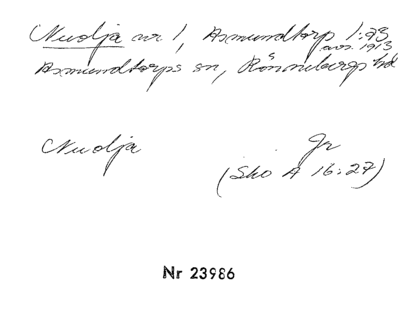 Nudja nr 1, Asmundtorp 1:73
avs. 1913
Asmundtorps sn, Rönnebergs hd
Nudja Jr
(Sko A 16:27)
Nr 23986